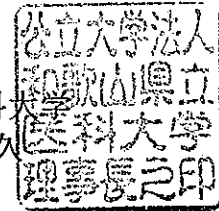 公立大学法人
和歌山県立
医科大学
理事長之印
大学